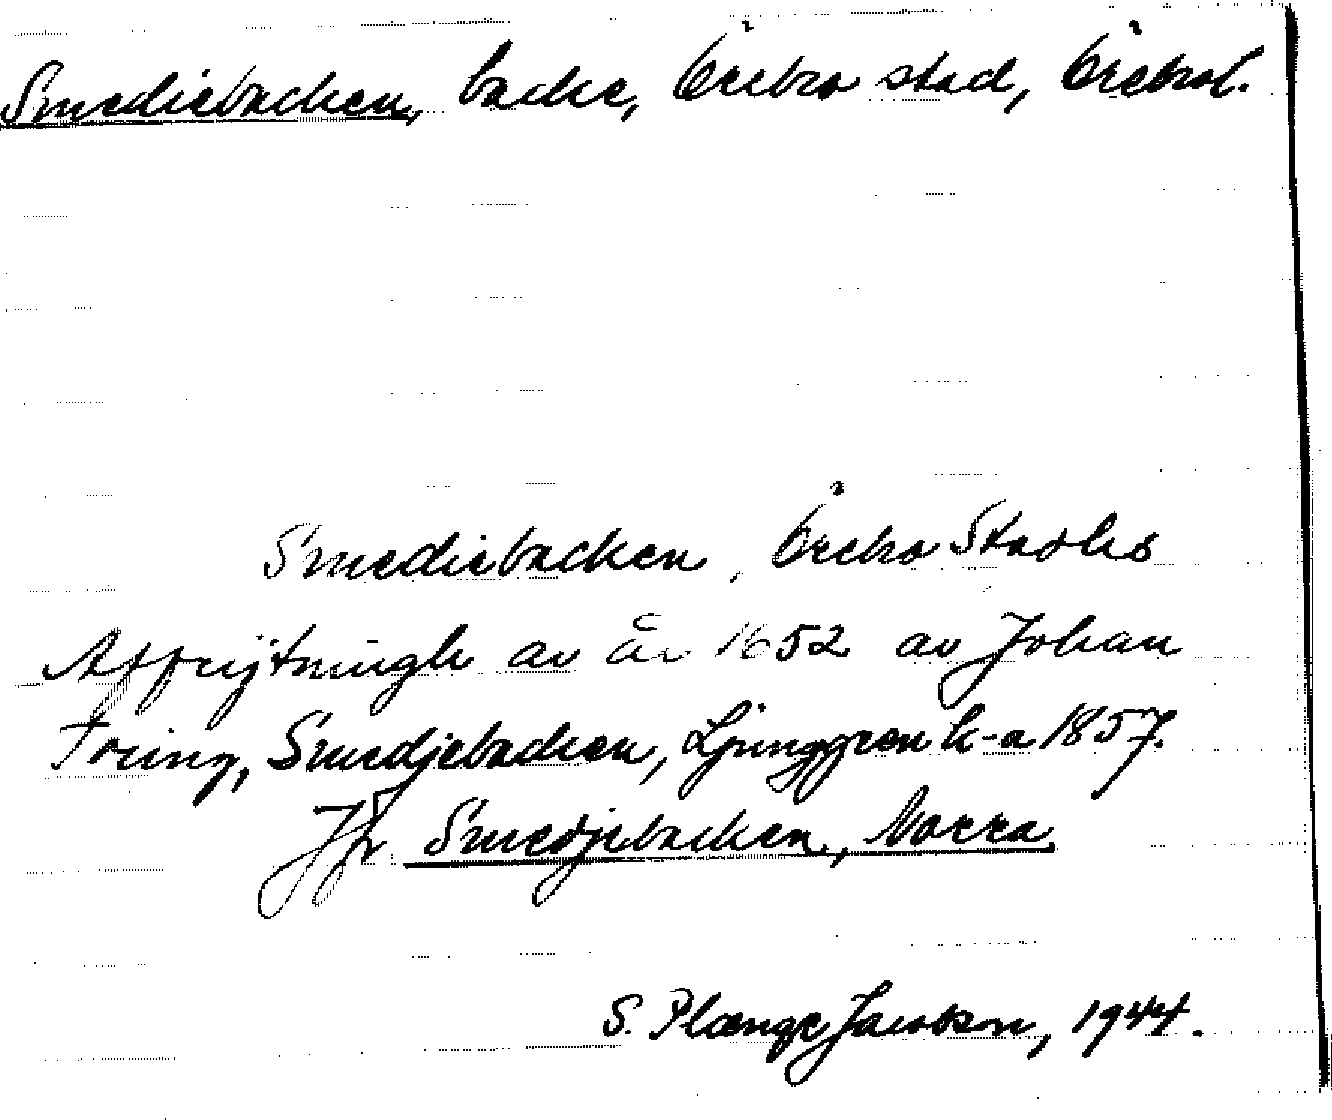 Smediebacken, backe, Örebro stad, Örebro l.
Smediebacken, Örebro Stadhs
Affrijtningh av år 1652 av Johan
Töring, Smedjebacken, Ljunggren k-a 1857.
Jfr Smedjebacken, Norra
S. Plænge Jacobson, 1944.